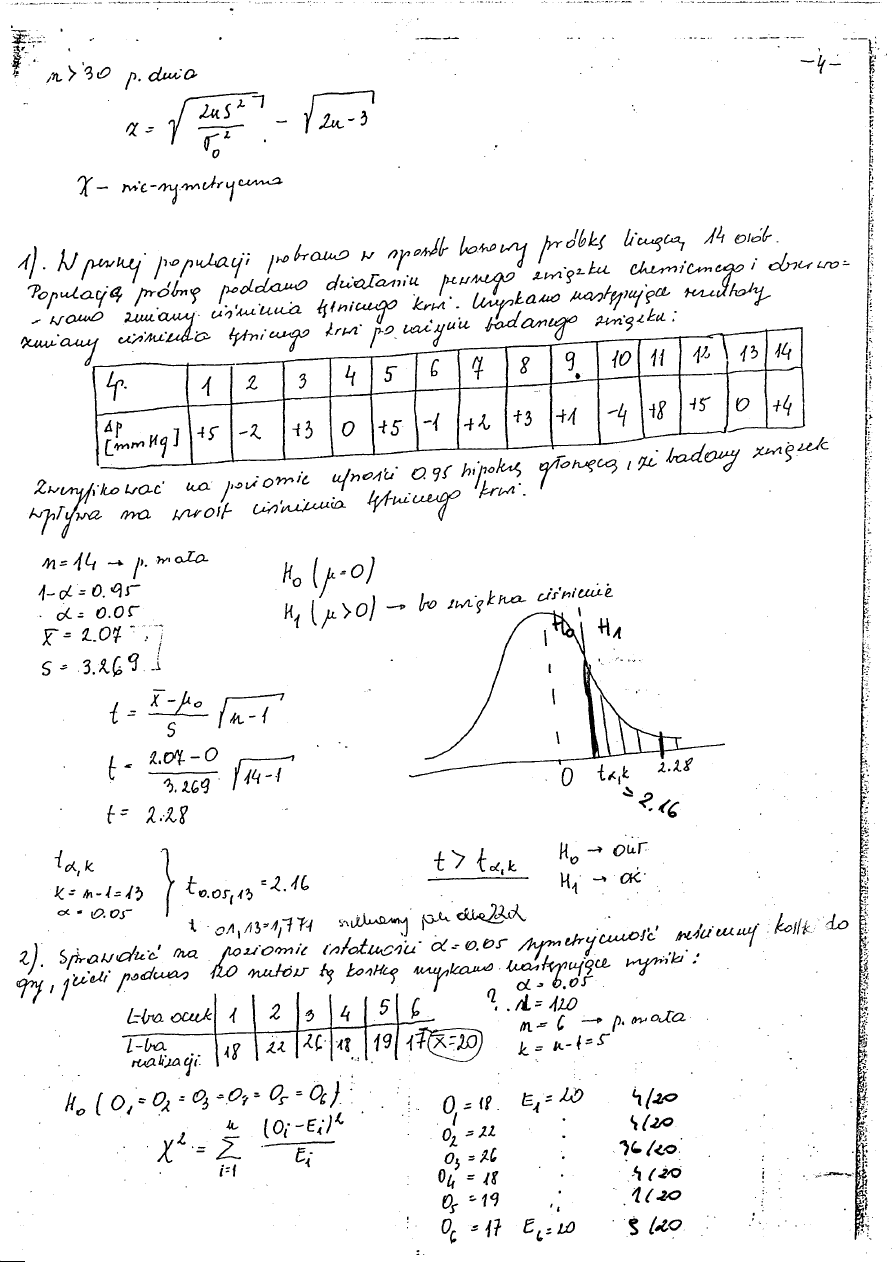 -4-
n>30 p. duża
z = √(2nS²/σ₀²) - √(2n-3)
χ - nie-symetryczna
1). W pewnej populacji pobrano w sposób losowy próbkę liczącą 14 osób.
Populację próbną poddano działaniu pewnego związku chemicznego i obserwo=
-wano zmiany ciśnienia tętniczego krwi. Uzyskano następujące rezultaty
zmiany ciśnienia tętniczego krwi po użyciu badanego związku:
Lp. 1 2 3 4 5 6 7 8 9. 10 11 12 13 14
Δp [mmHg] +5 -2 +3 0 +5 -1 +2 +3 +1 -4 +8 +5 0 +4
Zweryfikować na poziomie ufności 0.95 hipotezę głoszącą, że badany związek
wpływa na wzrost ciśnienia tętniczego krwi.
n=14 → p. mała
1-α = 0.95
α = 0.05
x̄ = 2.07
S = 3.269
H₀ (μ=0)
H₁ (μ>0) → bo zwiększa ciśnienie
H₀ H₁
0 tα,k 2.28
= 2.16
t = (x̄-μ₀)/S √(n-1)
t = (2.07-0)/3.269 √(14-1)
t = 2.28
tα,k
k = n-1=13
α = 0.05
t0.05,13 = 2.16
t > tα,k
H₀ → out
H₁ → OK
t 01,13=1,771
2). Sprawdzić na poziomie istotności α=0.05 symetryczność sześciennej kostki do
gry, jeżeli podczas 120 rzutów tą kostką uzyskano następujące wyniki:
L-ba oczek 1 2 3 4 5 6
L-ba realizacji 18 22 26 18 19 17 x̄=20
α = 0.05
? .. n = 120
n = 6 → p. mała
k = n-1=5
H₀ (O₁ = O₂ = O₃ = O₄ = O₅ = O₆)
χ² = Σ i=1 n (Oi - Ei)²/Ei
O₁ = 18 E₁ = 20 4/20
O₂ = 22 4/20
O₃ = 26 36/20
O₄ = 18 4/20
O₅ = 19 1/20
O₆ = 17 E₆ = 20 9/20